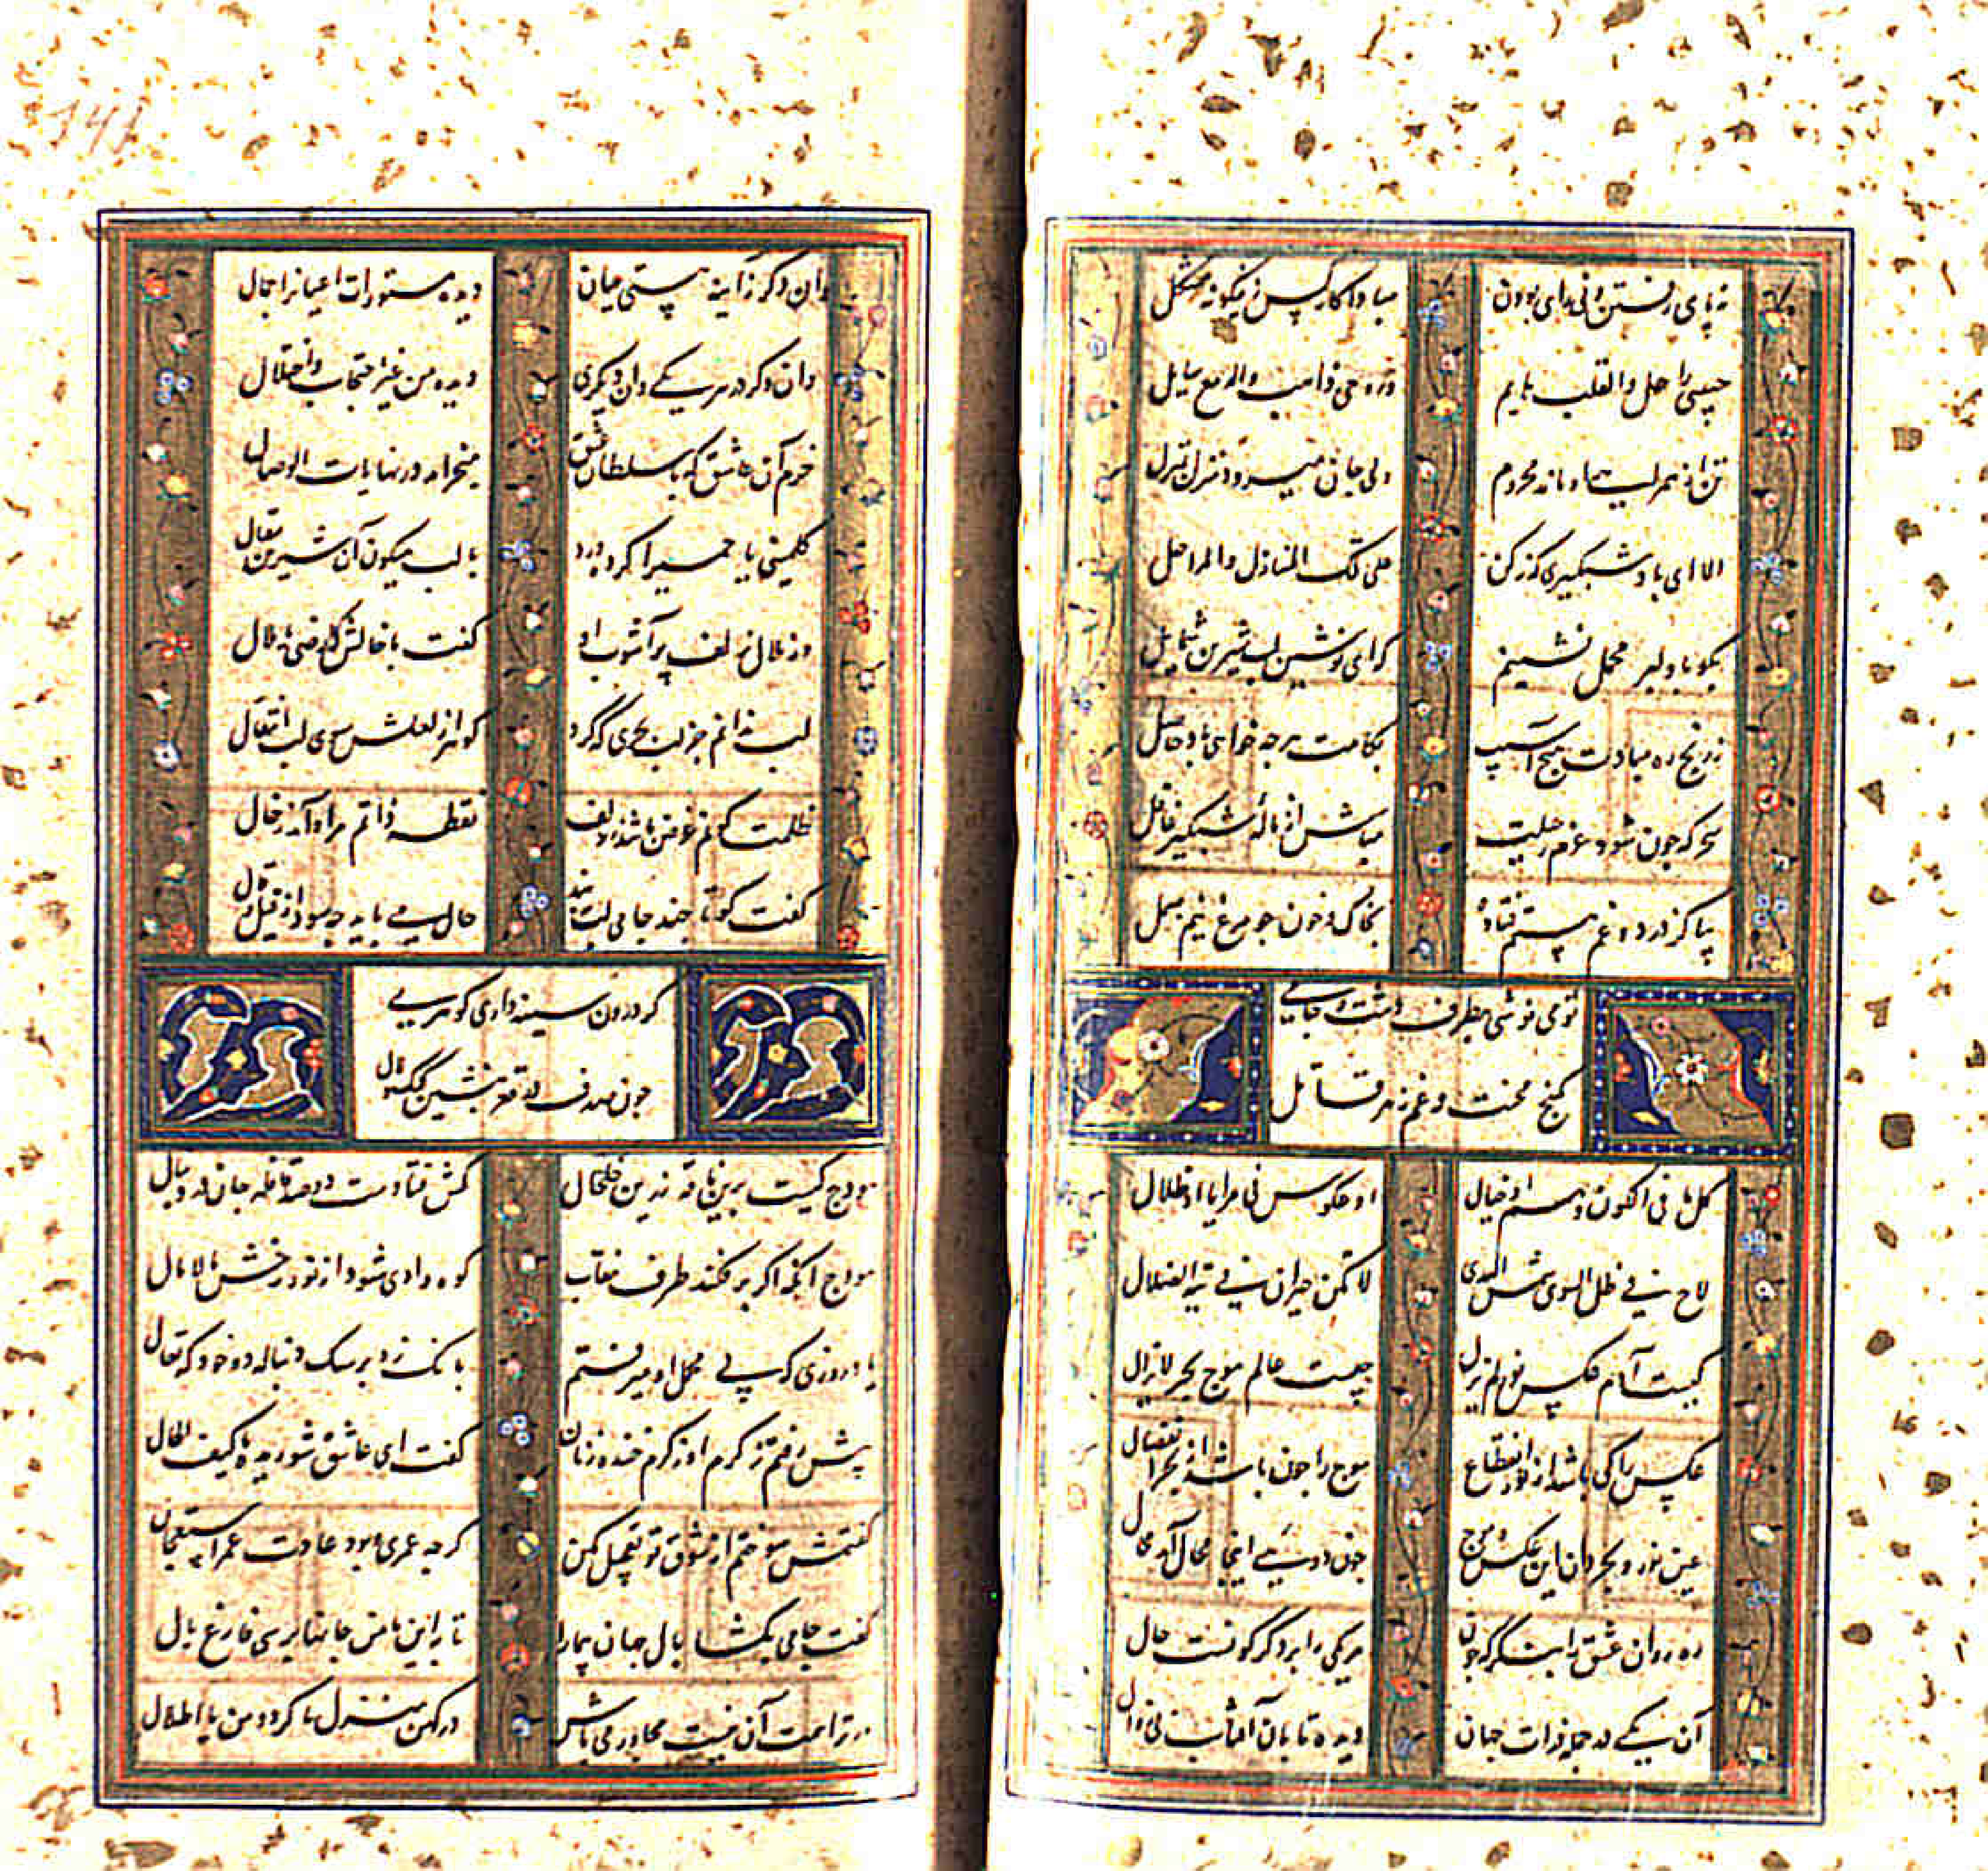 نه پای رفتن و نی رای بودن مبادا کار کس زینگونه مشکل
حبیبی راحل والقلب هایم و روحی ذاهب والدمع سایل
تن از همراهیت وا ماند محروم ولی جان میرود منزل بمنزل
الا ای باد شبگیری گذر کن علی تلک المنازل والمراحل
بگو با دلبر محمل نشینم که ای نوشین لب شیرین شمایل
ز رنج ره مبادت هیچ آسیب بکامت هر چه خواهی باد حاصل
سحرکه چون شود عزم رحیلت مباش از نالهٔ شبگیر غافل
بیا کز درد و غم هستم فتاده بخاک و خون چو مرغ نیم بسمل
توی نوشی بطرف دشت و جامی
کنج محنت و غم زهر قاتل
کل ما فی الکون وهم او خیال او عکوس فی مرایا او ظلال
لاح فی ظل السوی شمس الهدی لا تکن حیران فی تیه الضلال
کیست آدم عکس نور لم یزل چیست عالم موج بحر لایزال
عکس را کی باشد از نور انقطاع موج را چون باشد از بحر انفصال
عین نور و بحر دان این عکس و موج چون دویی اینجا محال آمد محال
ره روان عشق را بنگر که چون هر یکی را بر دگر گونست حال
آن یکی در جمله ذرات جهان دیده تابان آفتاب بی زوال
وان دگر ز آینه هستی عیان دیده مستورات اعیانرا جمال
وان دگر در هر یکی وان دیگری دیده من غیر احتجاب و اختلال
خرم آن عاشق که با سلطان عشق میخرامد در نهایات الوصال
کلمینی یا حمیرا کرده ورد با لب میگون آن شیرین مقال
وز بلال زلف پر آشوب او گفت با خالش که ارحنی یا بلال
لب ندانم جز لب بحری که کرد گوهر از لعلش سوی لب انتقال
ظلمت کونم غرض باشد ز زلف نقطه ذاتم مراد آمد ز خال
گفت و گو تا چند جامی لب ببند حال می باید چه سود از قیل و قال
گر درون سینه داری گوهری
چون صدف در قعر بنشین گنگ و لال
هودج کیست برین ناقه زرین خلخال کش فتادست دو صد قافله جان در دنبال
هودج آنکه اگر برفکند طرف نقاب کوه و وادی شود از نور رخش مالامال
یاد روزی که پی محمل او میرفتم بانگ زد بر سک دنباله دو خود که تعال
پیش رفتم ز کرم او ز کرم خنده زنان گفت ای عاشق شوریده ما کیف الحال
گفتمش سوختم از شوق تو تعجیل مکن گر چه عمری و بود عادت عمر استعجال
گفت جامی بگشا بال جهان پیما را تا به این بامش جانها بپری فارغ بال
ور ترا همت آن نیست مجاور می باش در کهن منزل ما کرد دمن یا اطلال